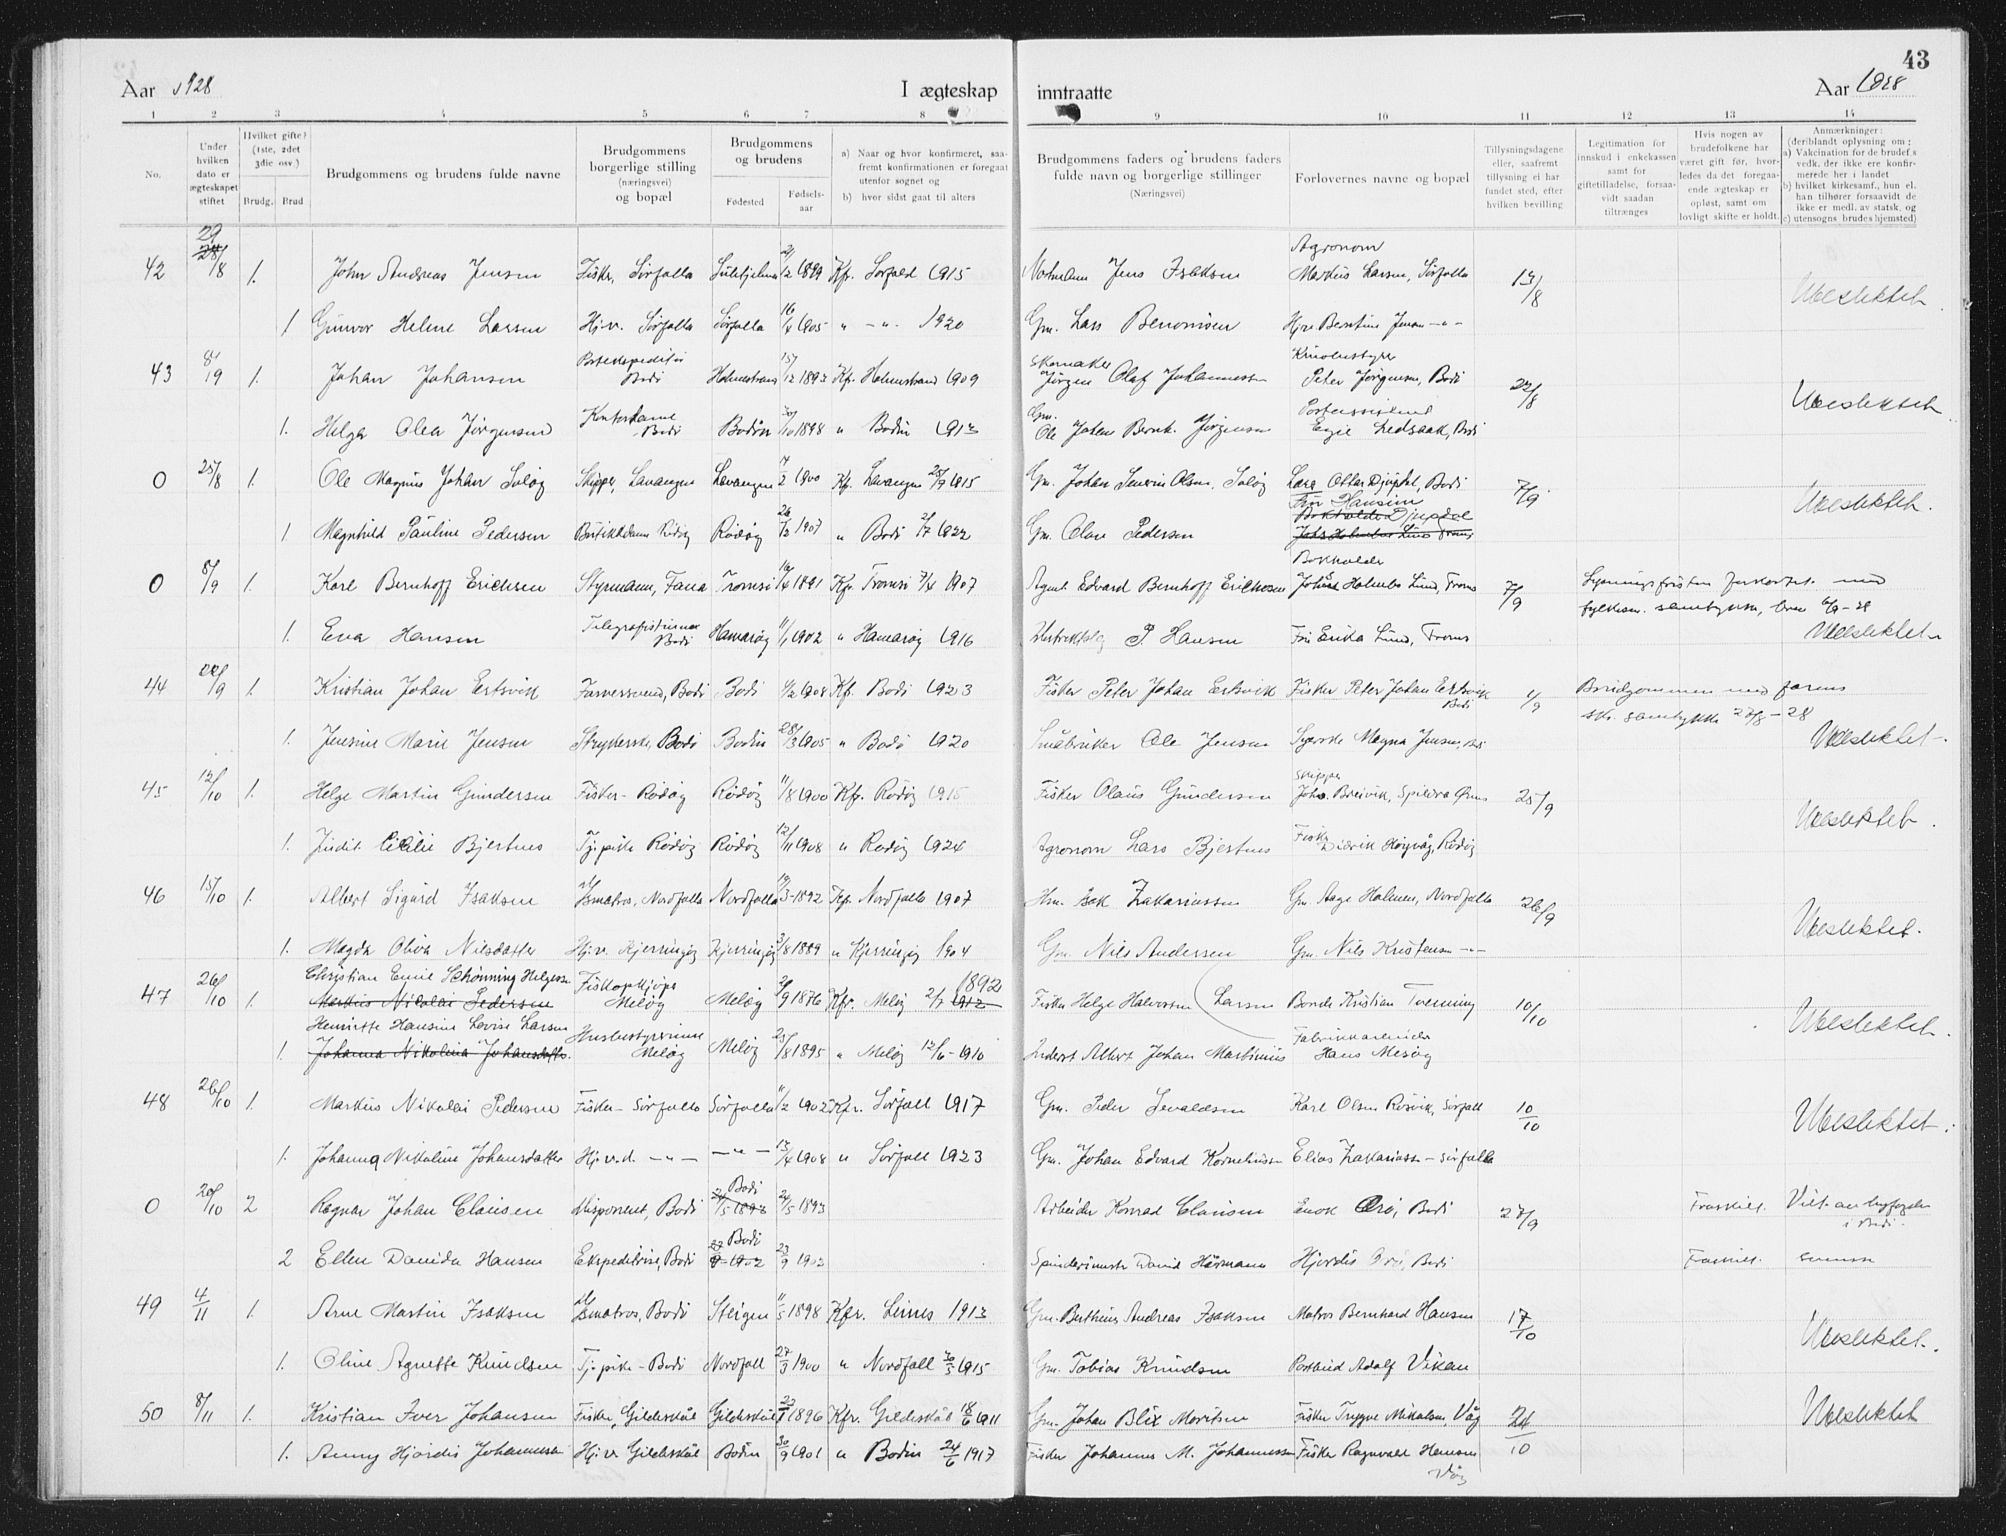 43
Aar 1928 I ægteskap inntraatte Aar 1928
1 2 3 4 5 6 7 8 9 10 11 12 13 14
No.
Under hvilken dato er ægteskapet stiftet
Hvilket gifte? (1ste, 2det 3die osv.)
Brudg. Brud
Brudgommens og brudens fulde navne
Brudgommens borgerlige stilling (næringsvei) og bopæl
Brudgommens og brudens
Fødested Fødsels-aar
a) Naar og hvor konfirmeret, saafremt konfirmationen er foregaat utenfor sognet og
b) hvor sidst gaat til alters
Brudgommens faders og brudens faders fulde navn og borgerlige stillinger (Næringsvei)
Forlovernes navne og bopæl
Tillysningsdagene eller, saafremt tillysning ei har fundet sted, efter hvilken bevilling
Legitimation for inskud i enkekassen samt for giftetilladelse, forsaavidt saadan tiltrænges
Hvis nogen av brudefolkene har været gift før, hvorledes da det foregaaende ægteskap er opløst, samt om lovligt skifte er holdt.
Anmerkninger: (deriblandt oplysning om:
a) Vakcination for de brudef.s vedk. der ikke ere konfirmerede her i landet
b) hvilket kirkesamf., hun el. han tilhører forsaavidt de ikke er medl. av statsk. og
c) utensogns brudes hjemsted)
42 29/8 1. John Andreas Jensen Fisker, Sørfolla Sulitjelma 2/12 1899 Kfr. Sørfold 1915 Jens Isaksen Agronom Markus Larsen, Sørfolla 13/8 Ubeslektet
1 Gunvor Helene Larsen Hj.v. Sørfolla Sørfolla 16/4 1905 " - " - 1920 Gm. Lars Benonisen Berntine Jensen - " -
43 8/9 1. Johan Johansen Postekspeditør Bodø Holmestrand 15/12 1893 Kfr. Holmestrand 1909 Skomaker Jørgen Olaf Johannessen Peter Jørgensen, Bodø 22/8 Ubeslektet
1. Helga Olea Jørgensen Kontordame Bodø Bodin 30/10 1898 " Bodin 1913 Gm. Ole Johan Bernh. Jørgensen Postassistent Bodø
0 25/8 1. Ole Magnus Johan Soløy Skipper, Lavangen Lavangen 7/2 1900 Kf. Lavangen 25/9 1915 Gm. Johan Severin Olsen, Soløy Bodø 7/9 Ubeslektet.
1 Magnhild Pauline Pedersen Butikkdame Rødøy Rødøy 26/2 1907 " Bodø 2/7 1922 Gm. Olav Pedersen Fru Hansine Djupdal
0 8/9 1. Karl Bernhoff Erichsen Styrmann, Fana Tromsø 16/4 1891 Kfr. Tromsø 7/4 1907 Agent Edvard Bernhoff Erichsen Bokholder Johan Holmbo Lund, Troms 7/9 Lysningsfristen forkortet med fylkesm. samtykke, brev 6/9-28
1. Eva Hansen Telegrafistinne Bodø Hamarøy 11/1 1902 " Hamarøy 1916 P. Hansen Fru Erika Lund, Troms Ubeslektet
44 22/9 1. Kristian Johan Ertsvik Farversvend, Bodø Bodø 4/2 1908 Kf. Bodø 1923 Fisker Peter Johan Ertsvik Fisker Peter Johan Ertsvik Bodø 4/9 Brudgommen med farens skr. samtykke 27/8-28
1. Jensine Marie Jensen Strykerske, Bodø Bodin 28/3 1905 " Bodø 1920 Småbruker Ole Jensen Syerske Magna Jensen Ubeslektet
45 12/10 1. Helge Martin Gundersen Fisker - Rødøy Rødøy 11/8 1900 Kfr. Rødøy 1915 Fisker Olaus Gundersen Skipper Johs. Breivik, Spildra 25/9 Ubeslektet.
1. Judit Cicilie Bjertnes Tj.pike Rødøy Rødøy 12/11 1908 " Rødøy 1924 Agronom Lars Bjertnes Fisker Didrik Rødøy
46 15/10 1. Albert Sigurd Isaksen Matros, Nordfolla Nordfolla 19/3-1892 Kfr. Nordfolla 1907 Hm. Isak Zakariassen Gm. Aage Holmen, Nordfolla 26/9 Ubeslektet.
1. Magda Oliva Nilsdatter Hj.v. Kjerringøy Kjerringøy 3/8 1889 " Kjerringøy 1904 Gm. Nils Andersen Gm. Nils Kristensen - " -
47 26/10 1. Christian Emil Schønning Helgesen Markus Nikolai Pedersen Fiskopkjøper Meløy Meløy 2/9 1876 Kfr. Meløy 2/7 1892 1912 Fisker Helge Halvorsen Larsen Bonde Kristian Tverning 10/10 Ubeslektet.
1. Henriette Hansine Lovise Larsen Johanna Nikolina Johansdatter. Husbestyrerinne Meløy Meløy 25/8 1895 " Meløy 12/6-1910 Inderst Albert Johan Martinius Fabrikkarbeider Hans Mesøy
48 26/10 1. Markus Nikolai Pedersen Fisker - Sørfolla Sørfolla 11/2 1902 Kfr. Sørfoll 1917 Gm. Peder Sevaldsen Karl Olsen Røsvik, Sørfoll 10/10 Ubeslektet.
1. Johanna Nikoline Johansdatter Hj.v.d. - " - - " - 13/4 1908 " Sørfoll 1923 Gm. Johan Edvard Korneliussen Elias Zakariassen - Sørfolla
0 20/10 2 Ragnar Johan Clausen Disponent, Bodø Bodø 24/5 1893 24/5 1893 Arbeider Konrad Clausen Enok Bodø 27/9 Fraskilt. Viet av byfogden i Bodø.
2 Ellen Danida Hansen Ekspeditrise, Bodø Bodø 23/9 1902 23/9 1902 Spinderimester David Hjørdis Bodø Fraskilt.
49 4/11 1. Arne Martin Isaksen Matros, Bodø Steigen 11/5 1898 Kfr. Leines 1913 Gm. Berthius Andreas Isaksen Matros Bernhard Hansen 17/10 Ubeslektet.
1. Oline Agnette Knudsen Tj.pike - Bodø Nordfoll 27/3 1900 " Nordfoll 30/5 1915 Gm. Tobias Knudsen Postbud Adolf Vikan
50 8/11 1. Kristian Iver Johansen Fisker, Gildeskål Gildeskål 22/1 1896 Kfr. Gildeskål 18/6 1911 Gm. Johan Blix Moritsen Fisker Trygve Nikolaisen Våg 24/10 Ubeslektet
1. Anny Hjørdis Johannesen Hj.v. Gildeskål Bodin 30/9 1901 " Bodin 24/6 1917 Fisker Johannes M. Johannessen Fisker Ragnvald Hansen Våg